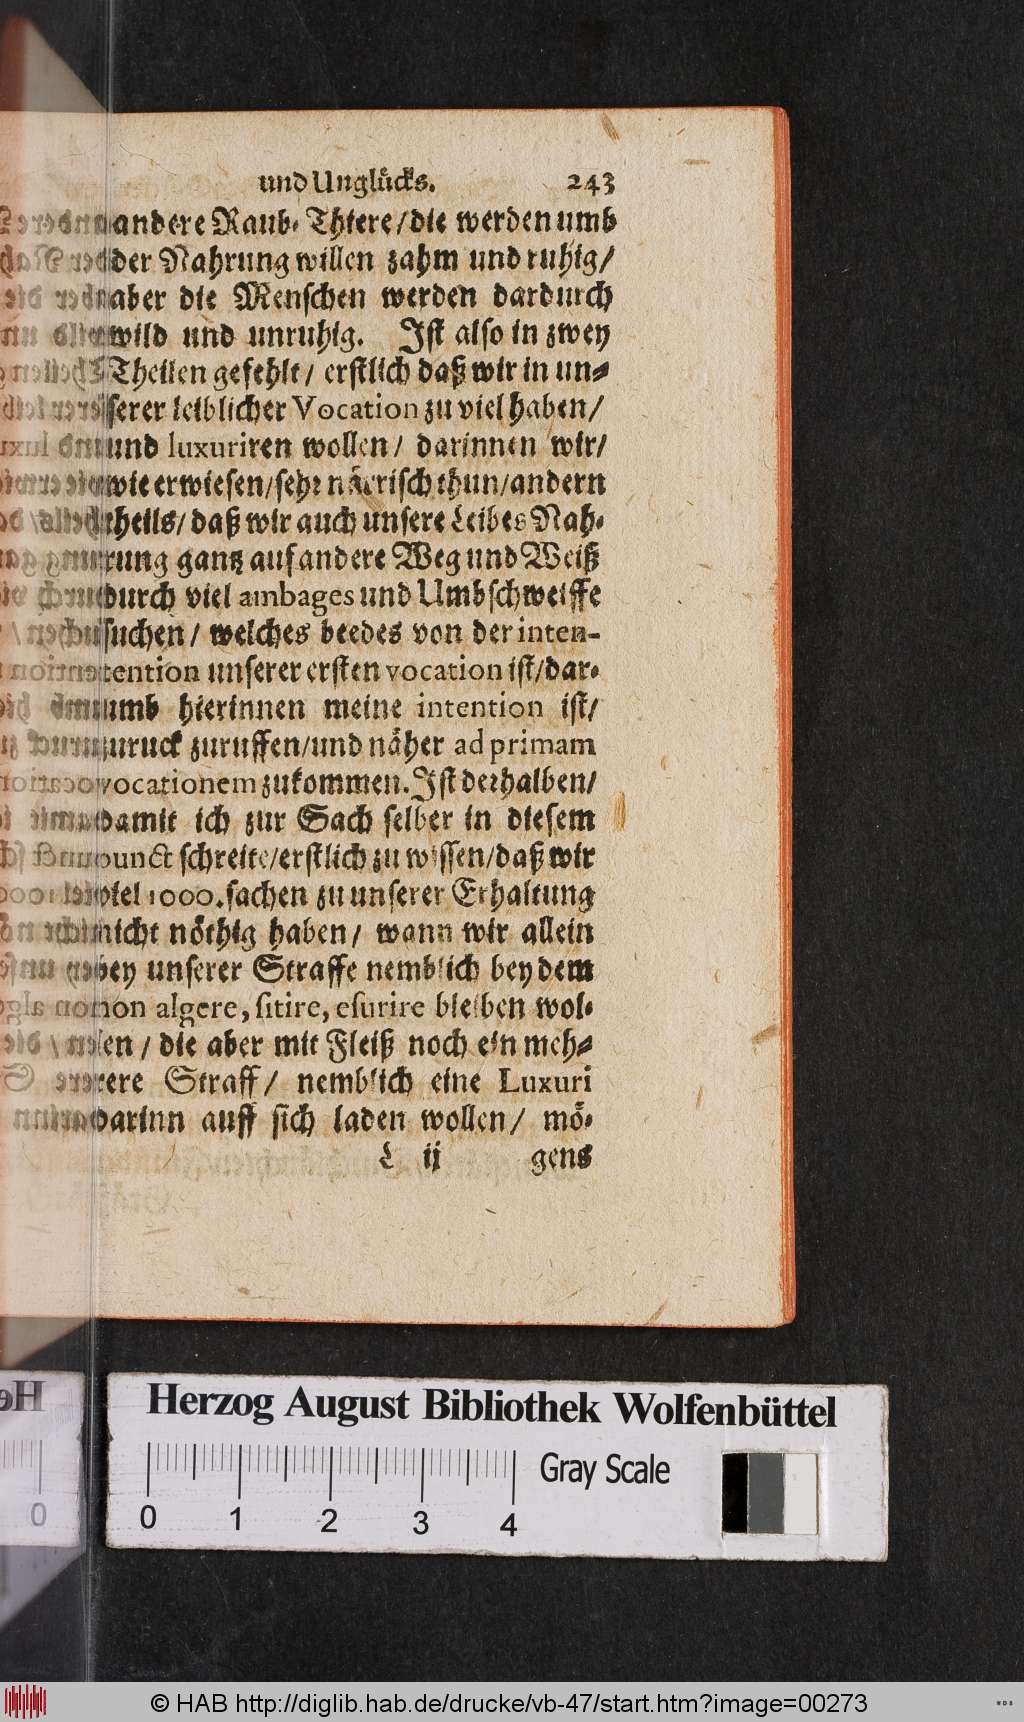 und Unglücks. 243
andere Raub-Thiere/die werden umb
der Nahrung willen zahm und ruhig/
aber die Menschen werden dardurch
wild und unruhig. Ist also in zwey
Theilen gefehlt/ erstlich daß wir in un-
serer leiblicher Vocation zu viel haben/
und luxuriren wollen/ darinnen wir/
wie erwiesen/sehr närrisch thun/andern
theils/ daß wir auch unsere Leibes Nah-
rung gantz auf andere Weg und Weiß
durch viel ambages und Umbschweiffe
suchen/ welches beedes von der inten-
tention unserer ersten vocation ist/dar-
umb hierinnen meine intention ist/
zuruck zuruffen/und näher ad primam
vocationem zukommen. Ist derhalben/
damit ich zur Sach selber in diesem
Punct schreite/erstlich zu wissen/daß wir
viel 1000. sachen zu unserer Erhaltung
nicht nöthig haben/ wann wir allein
bey unserer Straffe nemblich bey dem
non algere, sitire, esurire bleiben wol-
len / die aber mit Fleiß noch ein meh-
rere Straff/ nemblich eine Luxuri
darinn auff sich laden wollen/ mö-
L ij gens
Herzog August Bibliothek Wolfenbüttel
Gray Scale
0 1 2 3 4
© HAB http://diglib.hab.de/drucke/vb-47/start.htm?image=00273